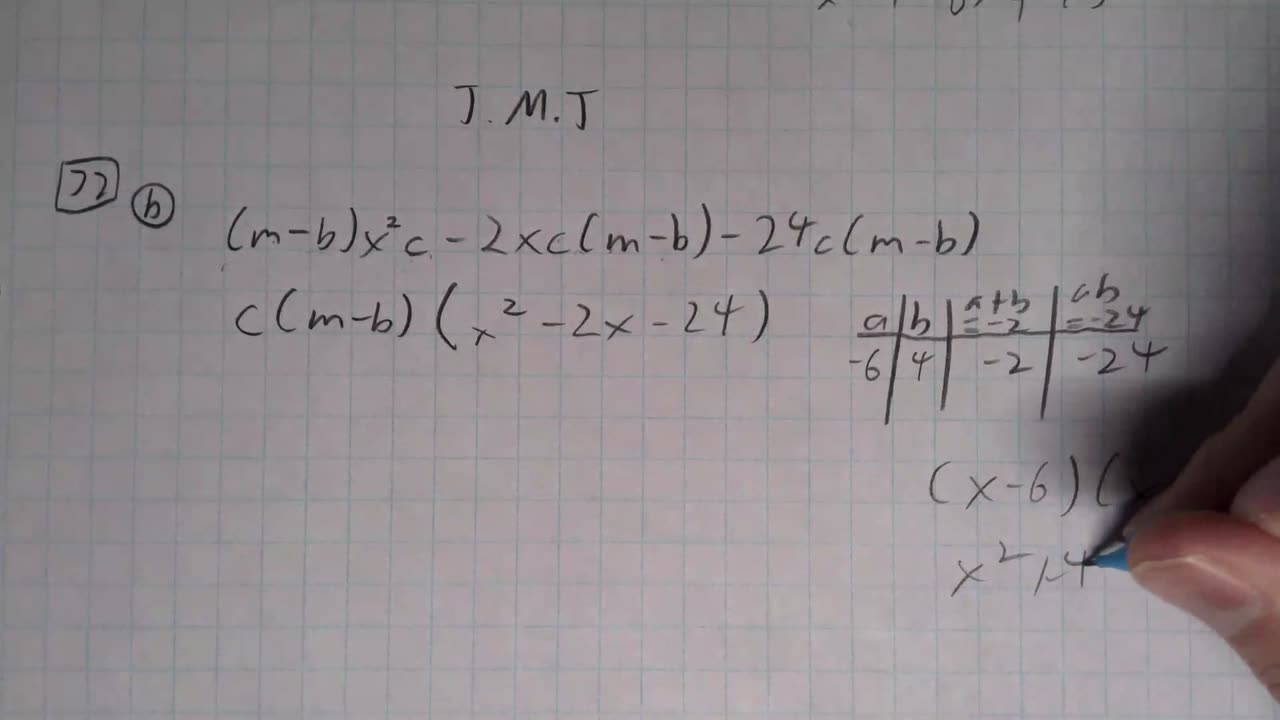 J.M.J
22 b (m-b)x²c - 2xc(m-b) - 24c(m-b)
c(m-b)(x² - 2x - 24)
a | b | a+b =-2 | ab =-24
-6 | 4 | -2 | -24
(x-6)(x
x² + 4